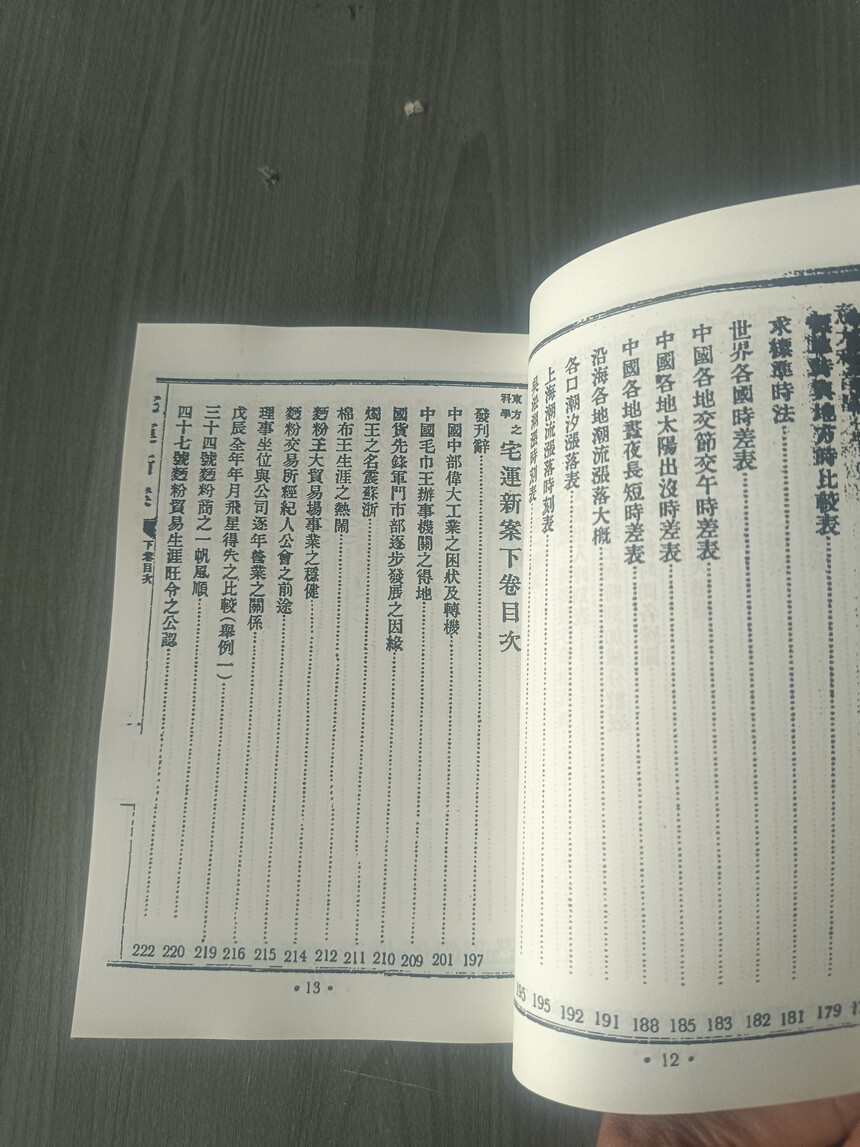 時與地方時比較表 179
求標準時法 181
世界各國時差表 182
中國各地交節交午時差表 183
中國各地太陽出沒時差表 185
中國各地晝夜長短時差表 188
沿海各地潮流漲落大概 191
各口潮汐漲落表 192
上海潮流漲落時刻表 195
吳淞潮漲時刻表 195
• 12 •
東方之科學 宅運新案下卷目次
發刊辭 197
中國中部偉大工業之困狀及轉機 201
中國毛巾王辦事機關之得地 209
國貨先鋒軍門市部逐步發展之因緣 210
燭王之名震蘇浙 211
棉布王生涯之熱鬧 212
麵粉王大貿易場事業之穩健 214
麵粉交易所經紀人公會之前途 215
理事坐位與公司逐年營業之關係 216
戊辰全年年月飛星得失之比較(舉例一) 219
三十四號麵粉商之一帆風順 220
四十七號麵粉貿易生涯旺令之公認 222
下卷目次
• 13 •